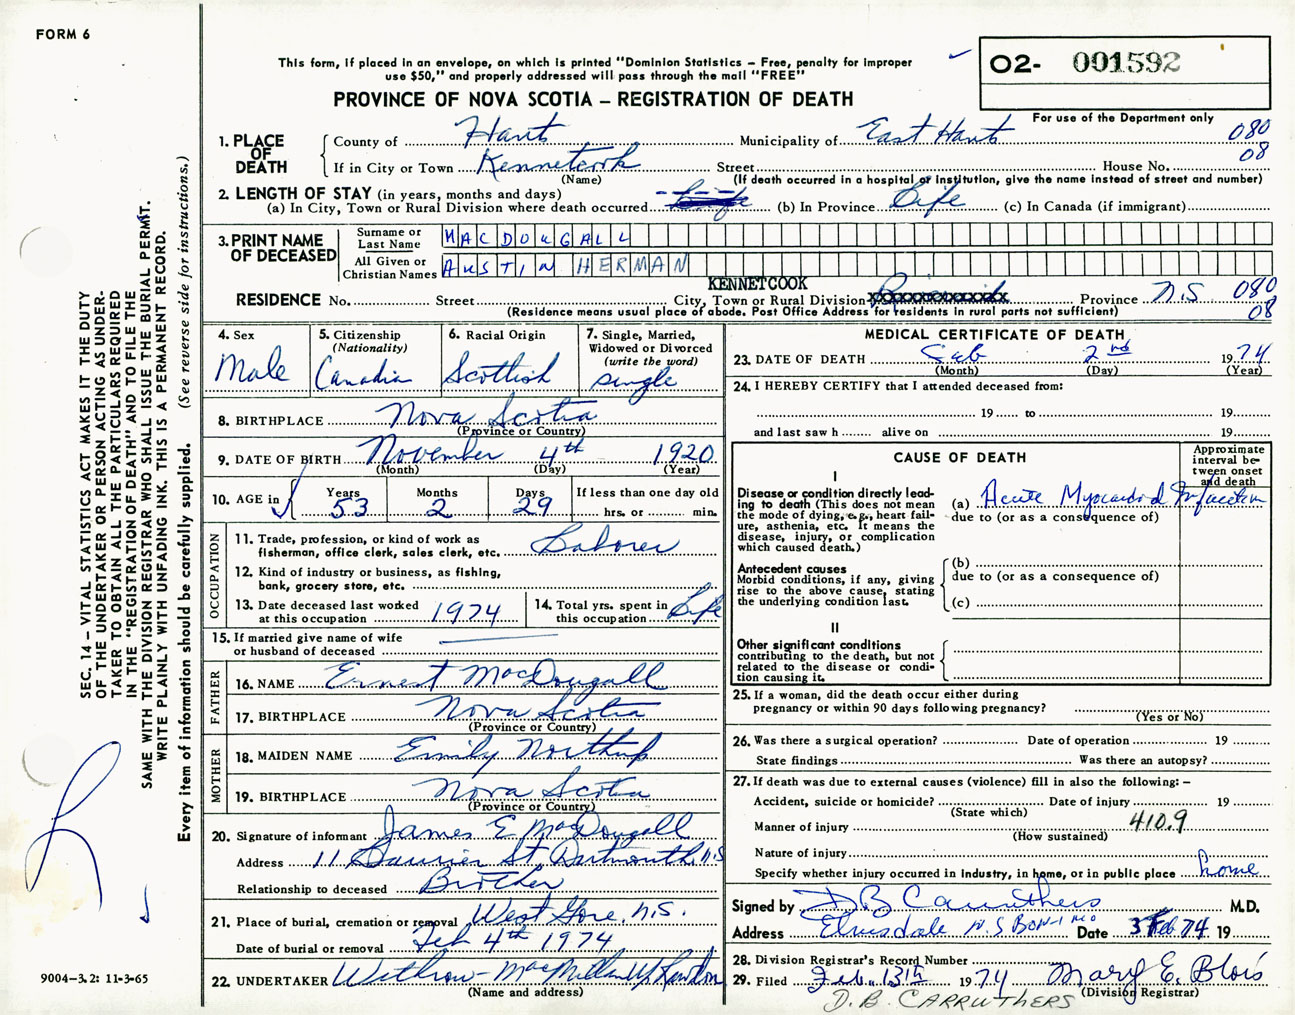 FORM 6
This form, if placed in an envelope, on which is printed "Dominion Statistics – Free, penalty for improper
use $50," and properly addressed will pass through the mail "FREE"
PROVINCE OF NOVA SCOTIA – REGISTRATION OF DEATH
02- 001592
For use of the Department only
1. PLACE OF DEATH
County of Hants Municipality of East Hants 080
If in City or Town Kennetcook Street House No. 08
(Name) (If death occurred in a hospital or institution, give the name instead of street and number)
2. LENGTH OF STAY (in years, months and days)
(a) In City, Town or Rural Division where death occurred (b) In Province Life (c) In Canada (if immigrant)
3. PRINT NAME OF DECEASED
Surname or Last Name MACDOUGALL
All Given or Christian Names AUSTIN HERMAN
KENNETCOOK
RESIDENCE No. Street City, Town or Rural Division Province N.S. 080
(Residence means usual place of abode. Post Office Address for residents in rural parts not sufficient) 08
4. Sex Male
5. Citizenship (Nationality) Canadian
6. Racial Origin Scottish
7. Single, Married, Widowed or Divorced (write the word) single
8. BIRTHPLACE Nova Scotia
(Province or Country)
9. DATE OF BIRTH November 4th 1920
(Month) (Day) (Year)
10. AGE in Years 53 Months 2 Days 29 If less than one day old hrs. or min.
OCCUPATION
11. Trade, profession, or kind of work as
fisherman, office clerk, sales clerk, etc. Laborer
12. Kind of industry or business, as fishing,
bank, grocery store, etc.
13. Date deceased last worked at this occupation 1974
14. Total yrs. spent in this occupation Life
15. If married give name of wife
or husband of deceased
FATHER
16. NAME Ernest MacDougall
17. BIRTHPLACE Nova Scotia
(Province or Country)
MOTHER
18. MAIDEN NAME Emily Northup
19. BIRTHPLACE Nova Scotia
(Province or Country)
20. Signature of informant James E MacDougall
Address 11 St, Dartmouth, N.S
Relationship to deceased Brother
21. Place of burial, cremation or removal West Gore, N.S.
Date of burial or removal Feb 4th 1974
22. UNDERTAKER Withrow-MacMillan
(Name and address)
MEDICAL CERTIFICATE OF DEATH
23. DATE OF DEATH Feb 2nd 1974
(Month) (Day) (Year)
24. I HEREBY CERTIFY that I attended deceased from:
19 to 19
and last saw h alive on 19
CAUSE OF DEATH
Approximate interval between onset and death
I
Disease or condition directly leading
to death (This does not mean
the mode of dying, e.g., heart failure,
asthenia, etc. It means the
disease, injury, or complication
which caused death.)
(a) Acute Myocardial Infarction
due to (or as a consequence of)
Antecedent causes
Morbid conditions, if any, giving
rise to the above cause, stating
the underlying condition last.
(b)
due to (or as a consequence of)
(c)
II
Other significant conditions
contributing to the death, but not
related to the disease or condition
causing it.
25. If a woman, did the death occur either during
pregnancy or within 90 days following pregnancy?
(Yes or No)
26. Was there a surgical operation? Date of operation 19
State findings Was there an autopsy?
27. If death was due to external causes (violence) fill in also the following: –
Accident, suicide or homicide? Date of injury 19
(State which)
Manner of injury 410.9
(How sustained)
Nature of injury
Specify whether injury occurred in industry, in home, or in public place home
Signed by D B Carruthers M.D.
Address Elmsdale N S Date 3 Feb 74 19
28. Division Registrar's Record Number
29. Filed Feb. 13th 1974 Mary E. Blois
(Division Registrar)
D. B. CARRUTHERS
SEC. 14 – VITAL STATISTICS ACT MAKES IT THE DUTY
OF THE UNDERTAKER OR PERSON ACTING AS UNDERTAKER
TO OBTAIN ALL THE PARTICULARS REQUIRED
IN THE "REGISTRATION OF DEATH" AND TO FILE THE
SAME WITH THE DIVISION REGISTRAR WHO SHALL ISSUE THE BURIAL PERMIT.
WRITE PLAINLY WITH UNFADING INK. THIS IS A PERMANENT RECORD.
Every item of information should be carefully supplied. (See reverse side for instructions.)
9004-3.2: 11-3-65